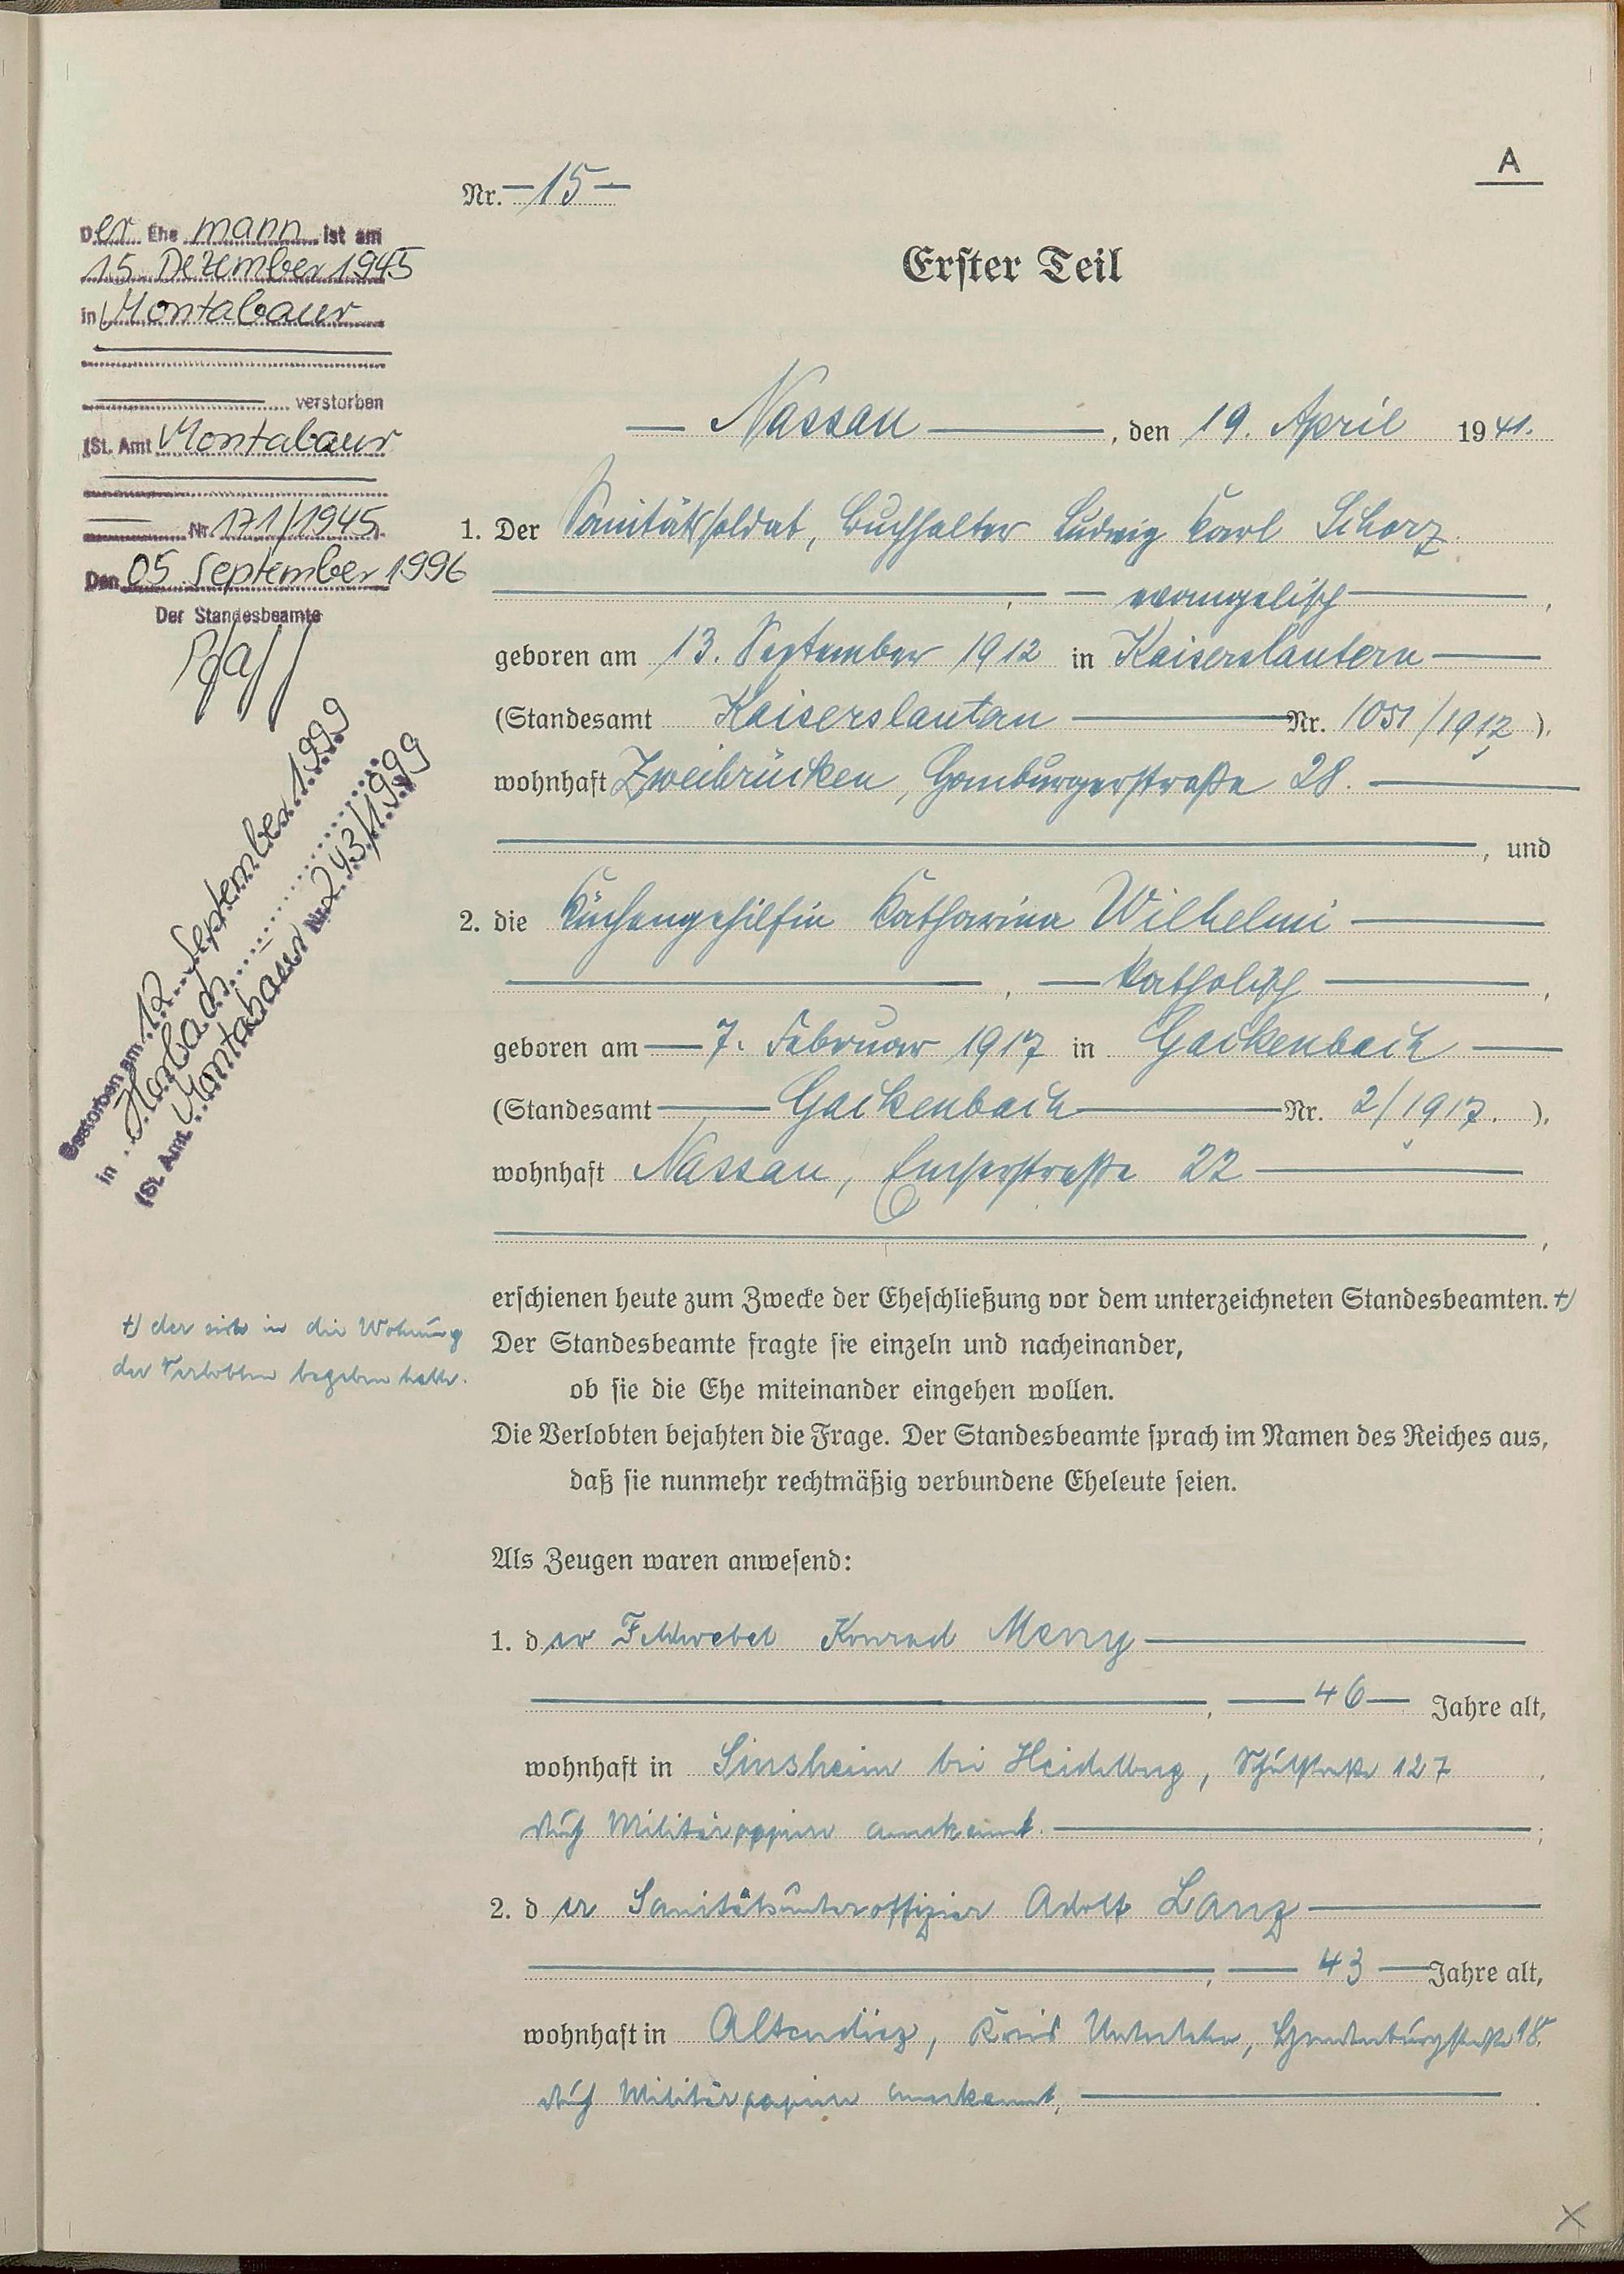 A
Nr. — 15 —
Erster Teil
Der Ehe mann ist am
15. Dezember 1945
in Montabaur
verstorben
(St. Amt Montabaur
Nr. 171/1945.
Den 05. September 1996
Der Standesbeamte
Pfaff
Gestorben am 12. September 1999
in Horbach
(St. Amt Montabaur Nr. 243/1999
— Nassau —, den 19. April 1941.
1. Der Sanitätssoldat, Buchhalter Ludwig Karl Schorz
—, — evangelisch —,
geboren am 13. September 1912 in Kaiserslautern —
(Standesamt Kaiserslautern — Nr. 1051/1912 ).
wohnhaft Zweibrücken, Homburgerstraße 28. —
—, und
2. die Küchengehilfin Katharina Wilhelmi —
—, — katholisch —,
geboren am — 7. Februar 1917 in Gackenbach —
(Standesamt — Gackenbach — Nr. 2/1917. ).
wohnhaft Nassau, Emserstraße 22 —
—,
erschienen heute zum Zwecke der Eheschließung vor dem unterzeichneten Standesbeamten. +)
+) der sich in die Wohnung
der Verlobten begeben hatte.
Der Standesbeamte fragte sie einzeln und nacheinander,
ob sie die Ehe miteinander eingehen wollen.
Die Verlobten bejahten die Frage. Der Standesbeamte sprach im Namen des Reiches aus,
daß sie nunmehr rechtmäßig verbundene Eheleute seien.
Als Zeugen waren anwesend:
1. der Feldwebel Konrad Meny —
—, — 46 — Jahre alt,
wohnhaft in Sinsheim bei Heidelberg, 127,
durch Militärpapiere anerkannt. —;
2. der Sanitätsunteroffizier Adolf Lanz —
—, — 43 — Jahre alt,
wohnhaft in Altendiez, Kreis Unterlahn, Hindenburgstraße 18.
durch Militärpapiere anerkannt, —.